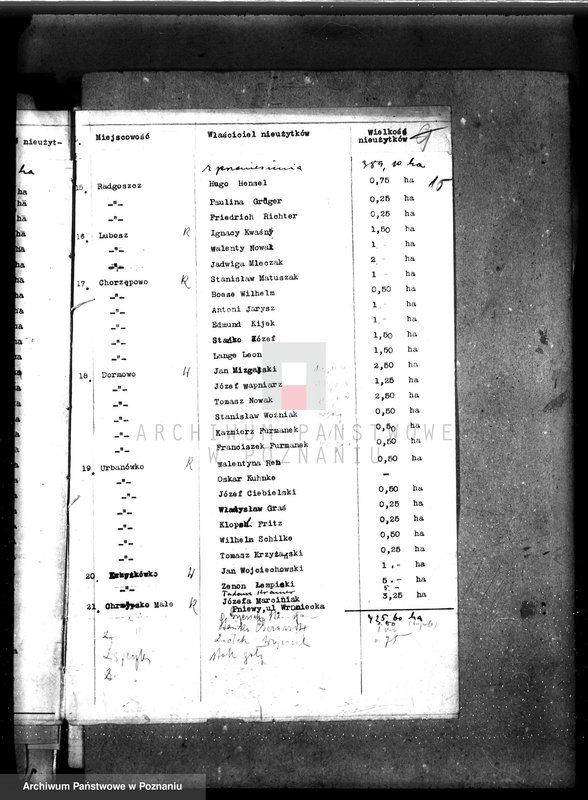 nieużyt-
Miejscowość Właściciel nieużytków Wielkość nieużytków
z przeniesienia 389,10 ha
15. Radgoszcz Hugo Hensel 0,75 ha 15
-"- Paulina Grüger 0,25 ha
-"- Friedrich Richter 0,25 ha
16. Lubosz R Ignacy Kwaśny 1,50 ha
-"- Walenty Nowak 1 ha
-"- Jadwiga Mleczak 2 ha
17. Chorzępowo R Stanisław Matuszak 1 ha
-"- Boese Wilhelm 0,50 ha
-"- Antoni Jarysz 1 ha
-"- Edmund Kijek 1 ha
-"- Stańko Józef 1,50 ha
-"- Lange Leon 1,50 ha
18. Dormowo W Jan Mizgalski 2,50 ha
-"- Józef Wapniarz 1,25 ha
-"- Tomasz Nowak 2,50 ha
-"- Stanisław Woźniak 0,50 ha
-"- Kazmierz Furmanek 0,50 ha
-"- Franciszek Furmanek 0,50 ha
19. Urbanówko R Walentyna Reh 0,50 ha
-"- Oskar Kuhnke -
-"- Józef Ciebielski 0,50 ha
-"- Władysław Graś 0,25 ha
-"- Klopsch Fritz 0,25 ha
-"- Wilhelm Schilke 0,50 ha
-"- Tomasz Krzyżagski 0,25 ha
20. W Jan Wojciechowski 1.- ha
-"- Zenon Łempicki 5.- ha
Tadeusz Kramer 5 -
21. Chrzypsko Małe R Józefa Marciniak 3,25 ha
Pniewy, ul Wroniecka
425,60 ha
ARCHIWUM PAŃSTWOWE
W POZNANIU
Archiwum Państwowe w Poznaniu